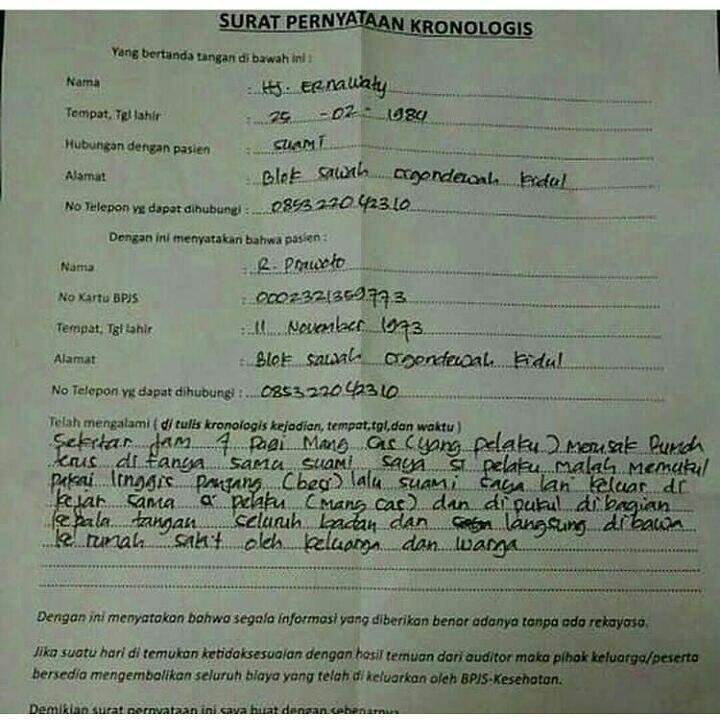 SURAT PERNYATAAN KRONOLOGIS
Yang bertanda tangan di bawah ini :
Nama : Hj. ERnawaty
Tempat, Tgl lahir : 25 - 02 - 1984
Hubungan dengan pasien : SUAMI
Alamat : Blok sawah cigondewah kidul
No Telepon yg dapat dihubungi : 085322042310
Dengan ini menyatakan bahwa pasien :
Nama : R. Prawoto
No Kartu BPJS : 0002321359773
Tempat, Tgl lahir : 11 November 1973
Alamat : Blok sawah cigondewah kidul
No Telepon yg dapat dihubungi : 085322042310
Telah mengalami ( di tulis kronologis kejadian, tempat,tgl,dan waktu )
Sekitar Jam 7 Pagi Mang cas (yang pelaku) merusak Rumah
terus di tanya sama suami saya si pelaku malah memukul
pakai linggis panjang (besi) lalu suami saya lari keluar di
kejar sama pelaku (mang cas) dan di pukul dibagian
kepala tangan seluruh badan dan langsung dibawa
ke rumah sakit oleh keluarga dan warga
Dengan ini menyatakan bahwa segala informasi yang diberikan benar adanya tanpa ada rekayasa.
Jika suatu hari di temukan ketidaksesuaian dengan hasil temuan dari auditor maka pihak keluarga/peserta
bersedia mengembalikan seluruh biaya yang telah di keluarkan oleh BPJS-Kesehatan.
Demikian surat pernyataan ini saya buat dengan sebenarnya